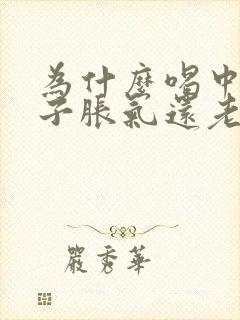 为什麽喝中
子脹氣還老
嚴秀華